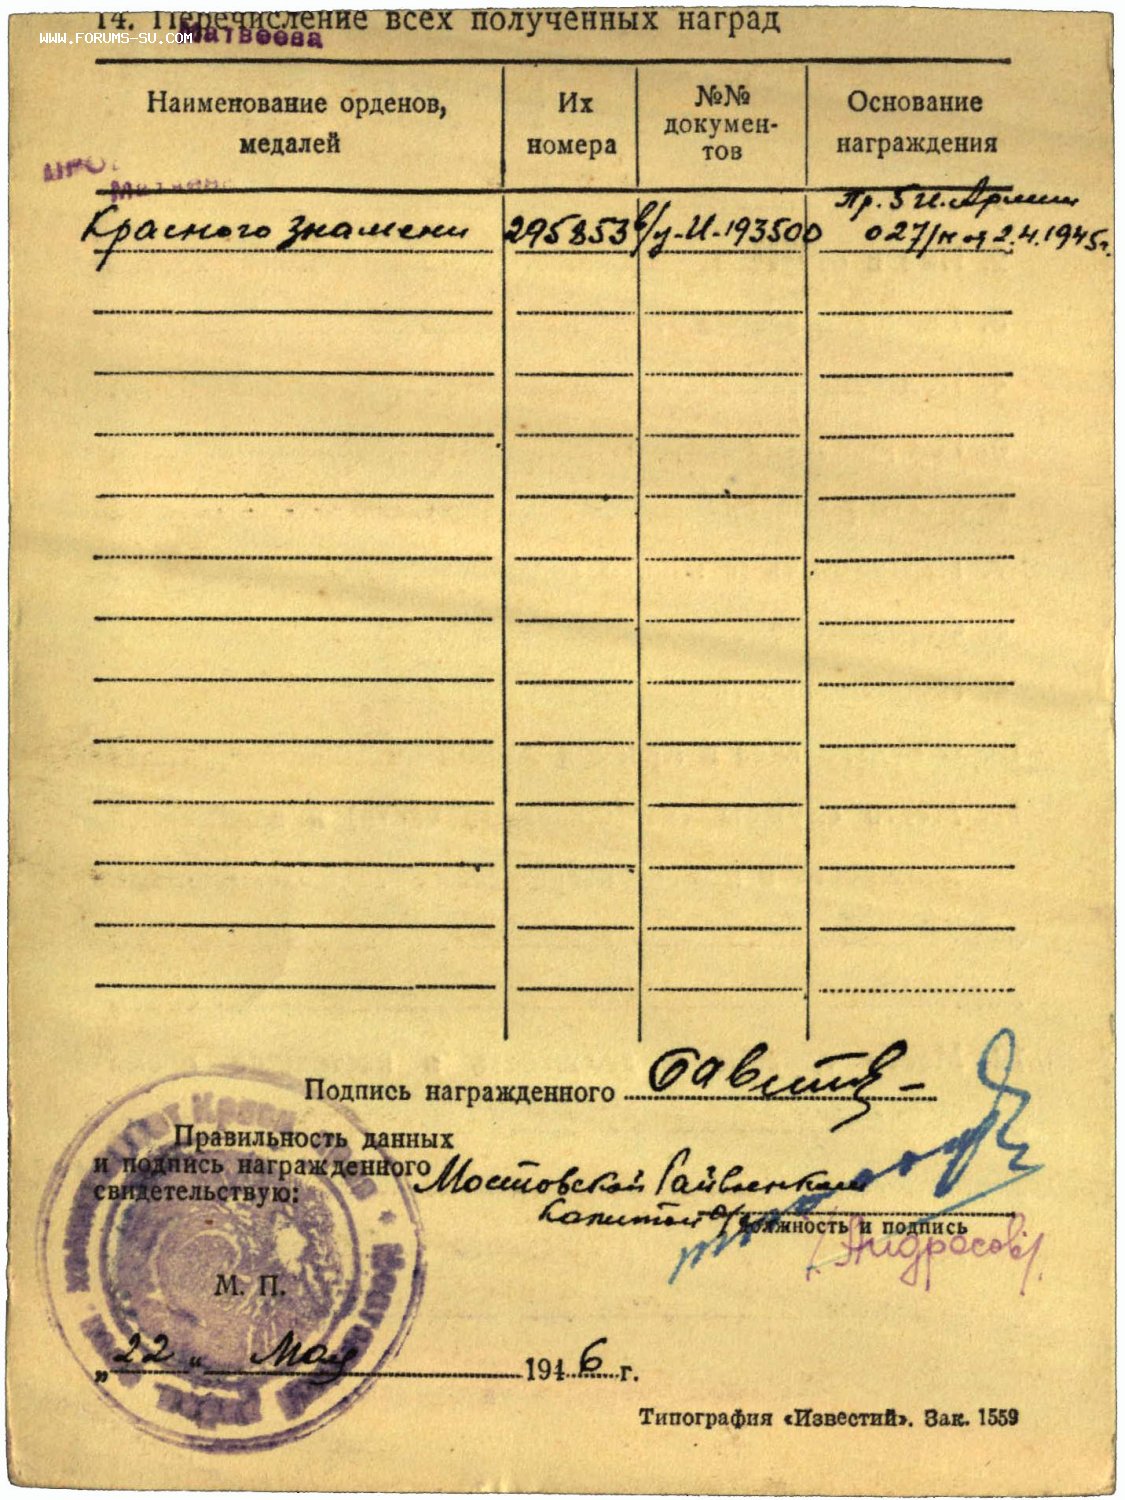 14. Перечисление всех полученных наград
WWW.FORUMS-SU.COM
Матвеева
Наименование орденов, медалей
Их номера
№№ докумен-
тов
Основание награждения
Красного Знамени 295853 в/у-И-193500 Пр. 5 И. Армии
027/н от 2.4.1945г.
Подпись награжденного
Правильность данных
и подпись награжденного
свидетельствую:
Мостовской Райвоенком
Капитан а/с
должность и подпись
/Андросов/.
М. П.
„22“ Мая 1946 г.
Типография «Известий». Зак. 1559